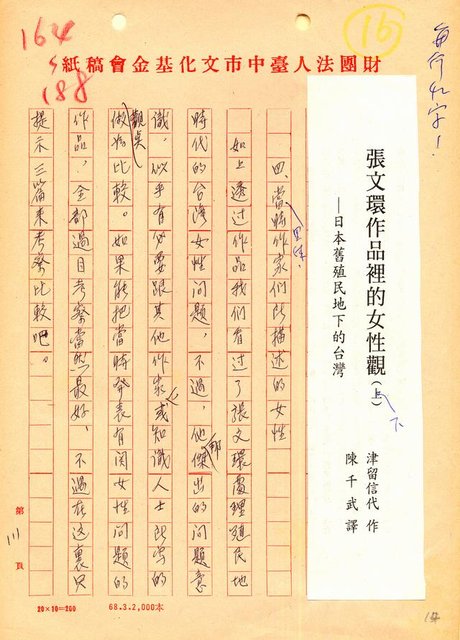 164
188
15
每行32字！
財團法人臺中市文化基金會稿紙
張文環作品裡的女性觀（上）
下
—日本舊殖民地下的台灣
津留信代 作
陳千武 譯
四、當時作家們所描述的女性
如上透過作品我們看過了張文環處理殖民地
時代的台灣女性問題，不過，他那傑出的問題意
識，似乎有必要跟其他作家或知識人士所寫的
觀點
做為比較。如果能把當時發表有関女性問題的
作品，全部過目考察當然最好，不過在这裏只
提示三篇來考察比較吧。
第
頁
20×10=200
68.3.2,000本